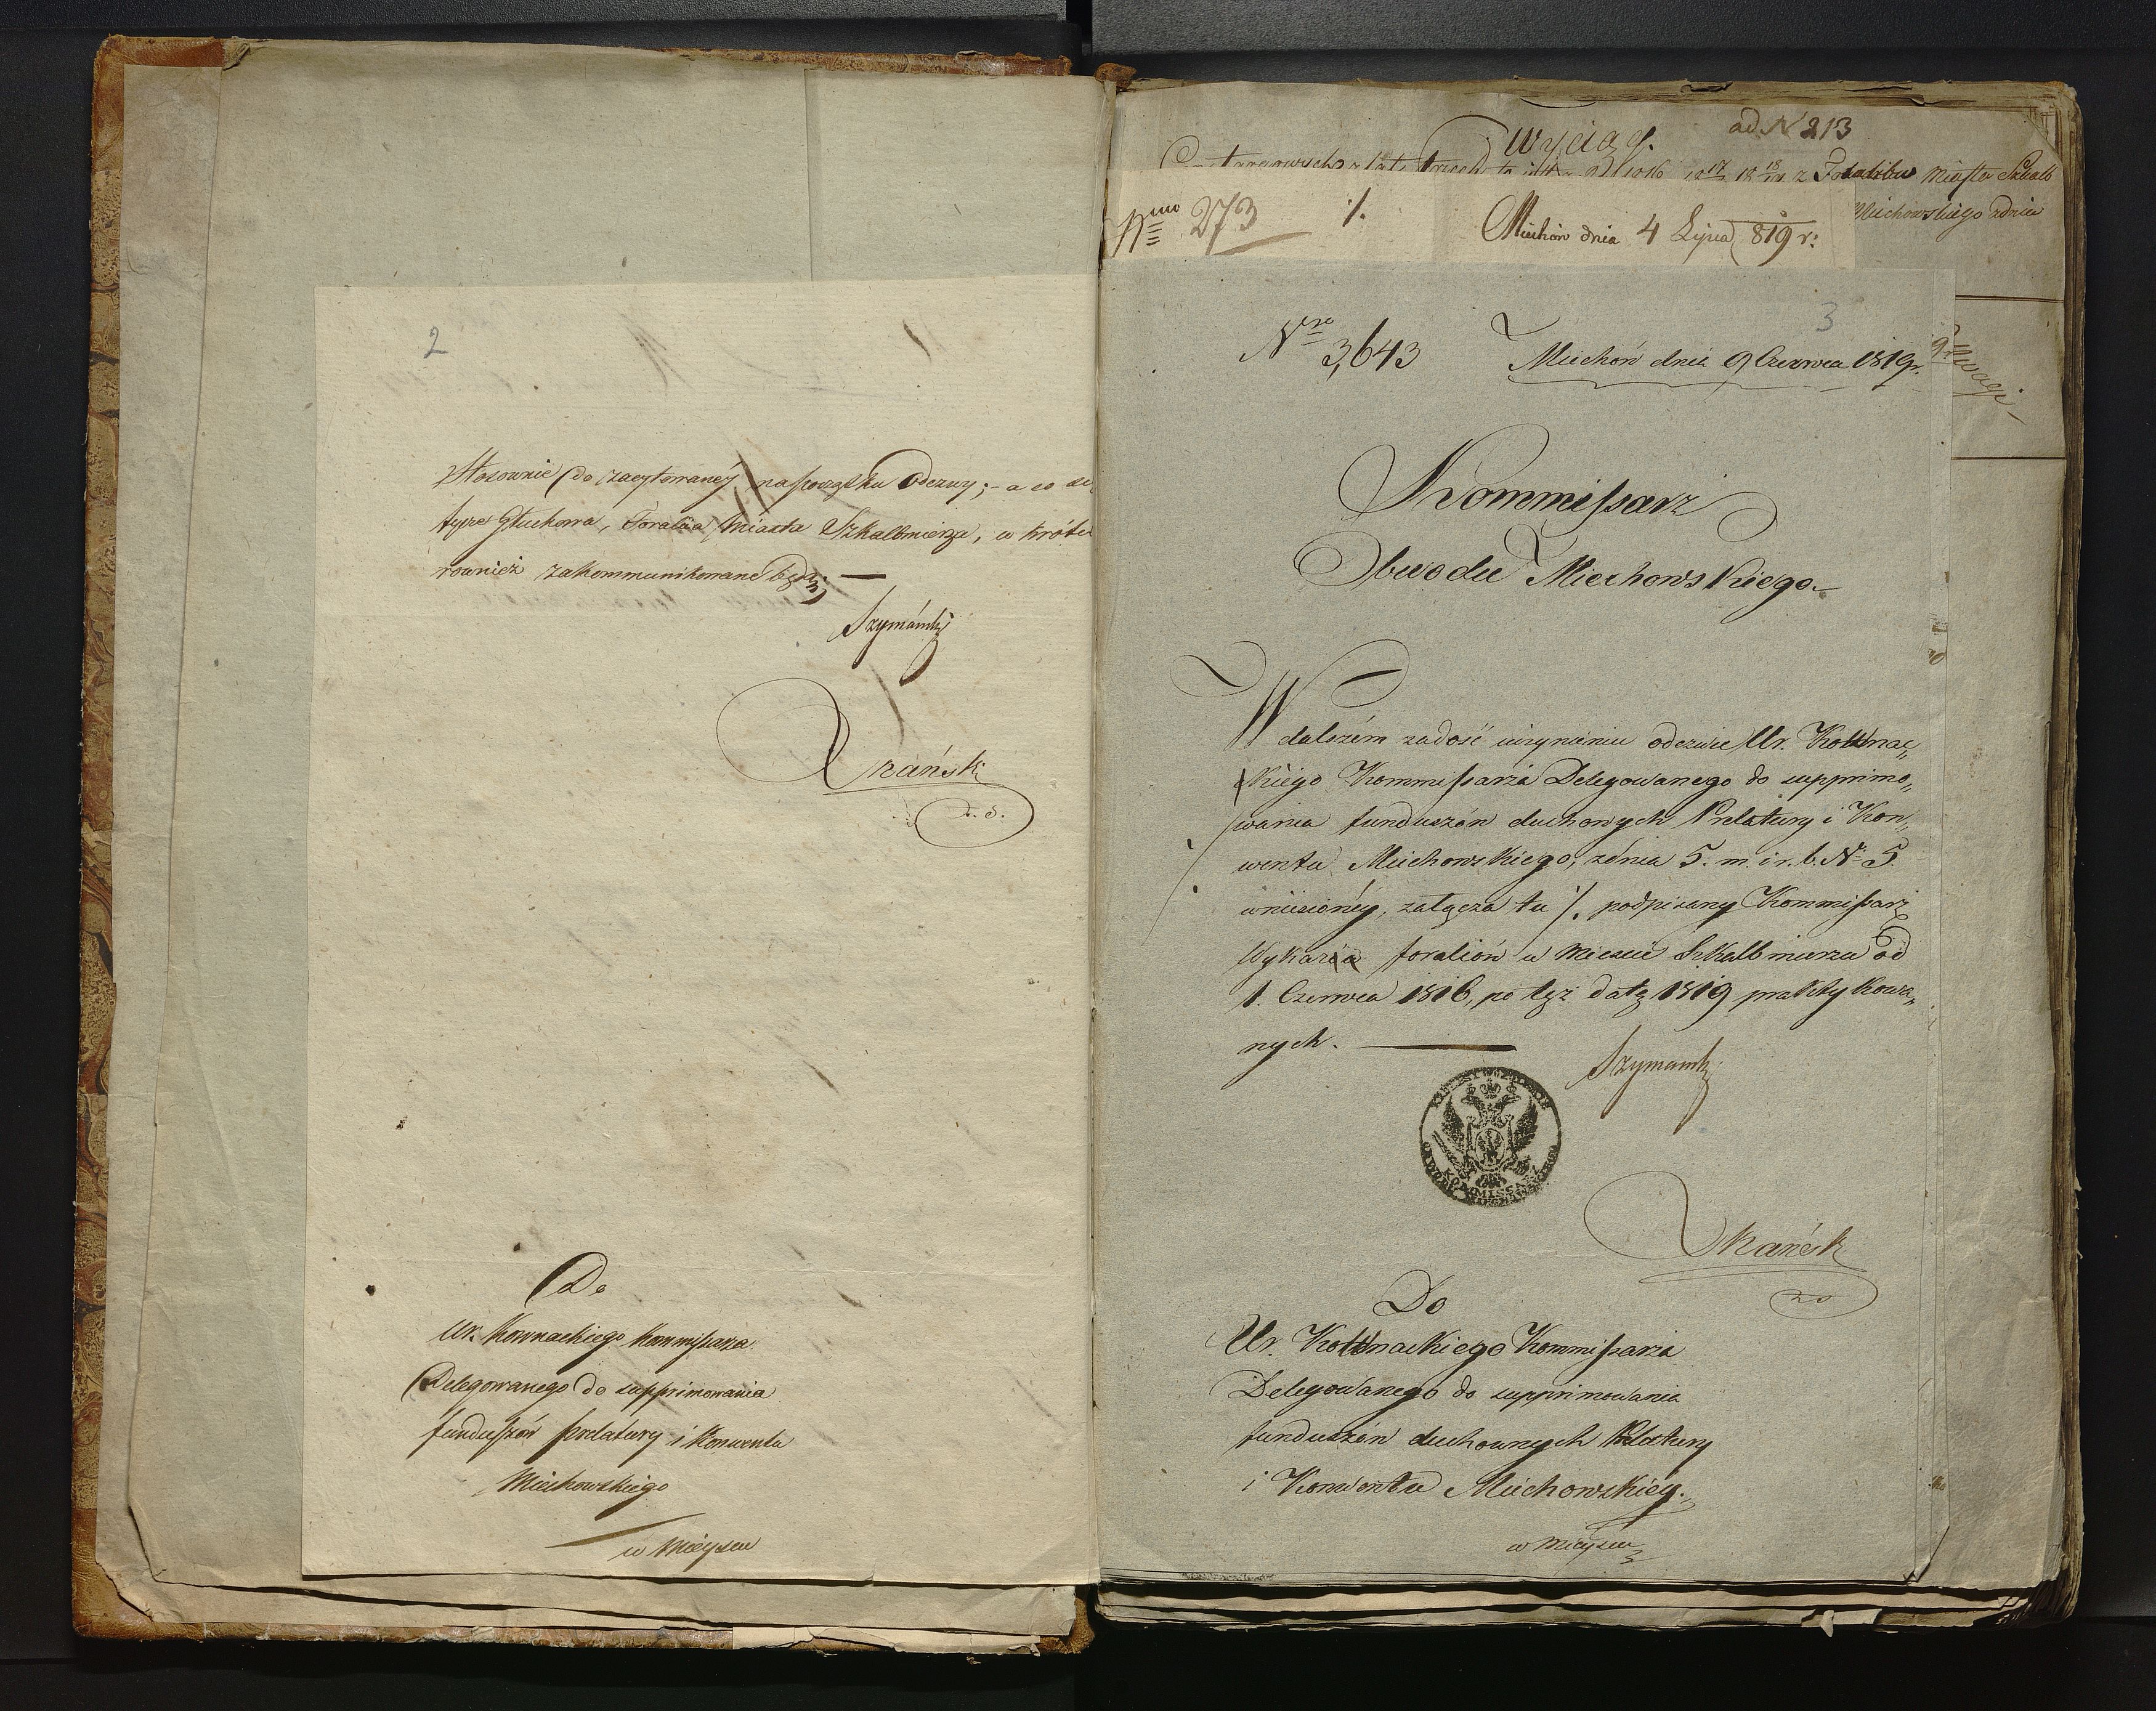 2
Stosownie do zacytowanéy na początku Odezwy; – a co do
tyze Głuchowa, Foralia Miasta Szkalbmierza, w krótce
rownież zakommunikowane będą; —
Szymański
Do
Ur. Kownackiego Kommissarza
Delegowanego do supprimowania
funduszów prelatury i Konwentu
Miechowskiego
w Mieyscu
Wyciąg.
ad N 213
Miasta Szkalb
Nro 273 ·/.
Miechów dnia 4 Lipca 819 r:
Miechowskiego zdnia
3
Nro 3,643
Miechów dnia 9 Czerwca 1819r.
Uwagi
Kommissarz
Obwodu Miechowskiego.
W dalszém zadość uczynieniu odezwie Ur. Kownac„
kiego Kommissarza Delegowanego do supprimo„
wania funduszów duchonych Prelatury i Kon„
wentu Miechowskiego, zdnia 5. m. i r. b. No 5.
wniesionéy, załącza tu ·/. podpisany Kommissarz
Wykaz foraliów w Miescie Szkalbmierzu od
1. Czerwca 1816, po tęż datę 1819 praktykowa„
nych. —
Szymański
KOMMISSARZ
Do
Ur. Kownackiego Kommissarza
Delegowanego do supprimowania
funduszów duchownych Prelatury
i Konwentu Miechowskiey.
w Mieyscu